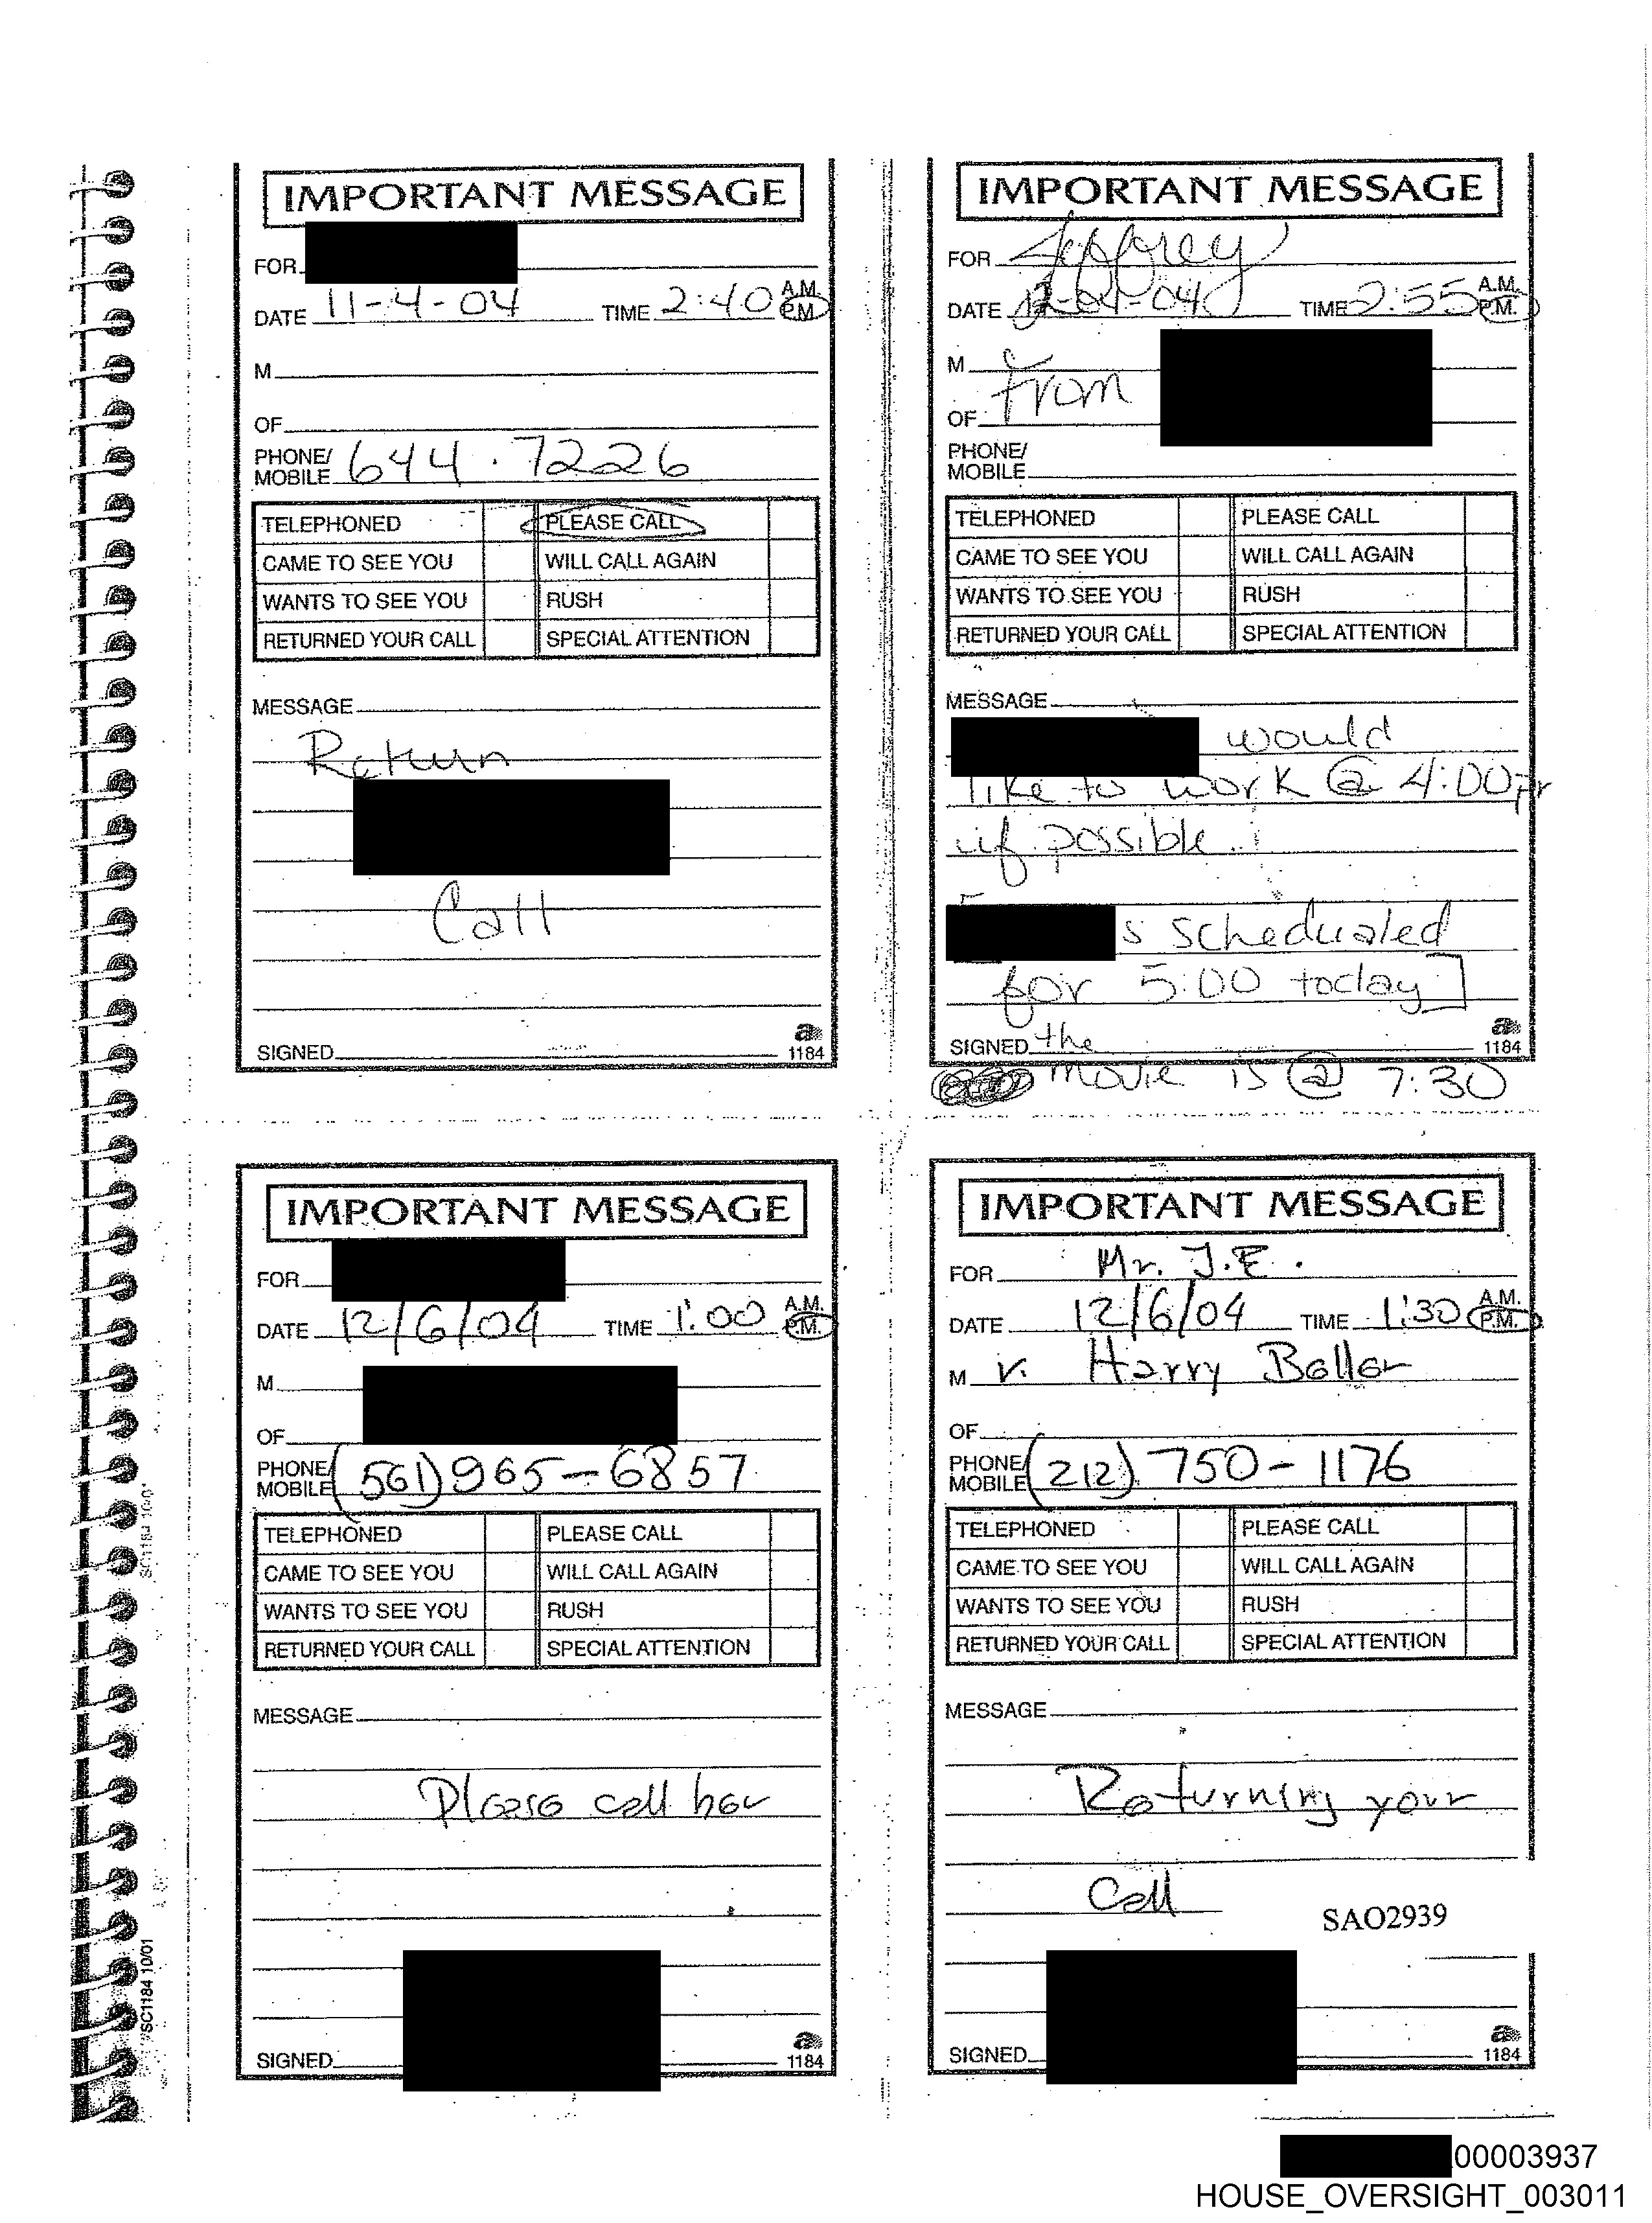 IMPORTANT MESSAGE
FOR
DATE 11-4-04 TIME 2:40 A.M. P.M.
M
OF
PHONE/ MOBILE 644.7226
TELEPHONED PLEASE CALL
CAME TO SEE YOU WILL CALL AGAIN
WANTS TO SEE YOU RUSH
RETURNED YOUR CALL SPECIAL ATTENTION
MESSAGE
Return
Call
SIGNED
1184
IMPORTANT MESSAGE
FOR Jeffrey
DATE 12-04-04 TIME 2:55 A.M. P.M.
M
From
OF
PHONE/ MOBILE
TELEPHONED PLEASE CALL
CAME TO SEE YOU WILL CALL AGAIN
WANTS TO SEE YOU RUSH
RETURNED YOUR CALL SPECIAL ATTENTION
MESSAGE
would
like to work @ 4:00
if possible.
s scheduled
for 5:00 today]
SIGNED the
1184
movie is @ 7:30
IMPORTANT MESSAGE
FOR
DATE 12/6/04 TIME 1:00 A.M. P.M.
M
OF
PHONE/ MOBILE (561) 965-6857
TELEPHONED PLEASE CALL
CAME TO SEE YOU WILL CALL AGAIN
WANTS TO SEE YOU RUSH
RETURNED YOUR CALL SPECIAL ATTENTION
MESSAGE
Please call her
SIGNED
1184
SC1184 10/01
IMPORTANT MESSAGE
FOR Mr. J.E.
DATE 12/6/04 TIME 1:30 A.M. P.M.
M r. Harry Beller
OF
PHONE/ MOBILE (212) 750-1176
TELEPHONED PLEASE CALL
CAME TO SEE YOU WILL CALL AGAIN
WANTS TO SEE YOU RUSH
RETURNED YOUR CALL SPECIAL ATTENTION
MESSAGE
Returning your
Call
SAO2939
SIGNED
1184
00003937
HOUSE_OVERSIGHT_003011